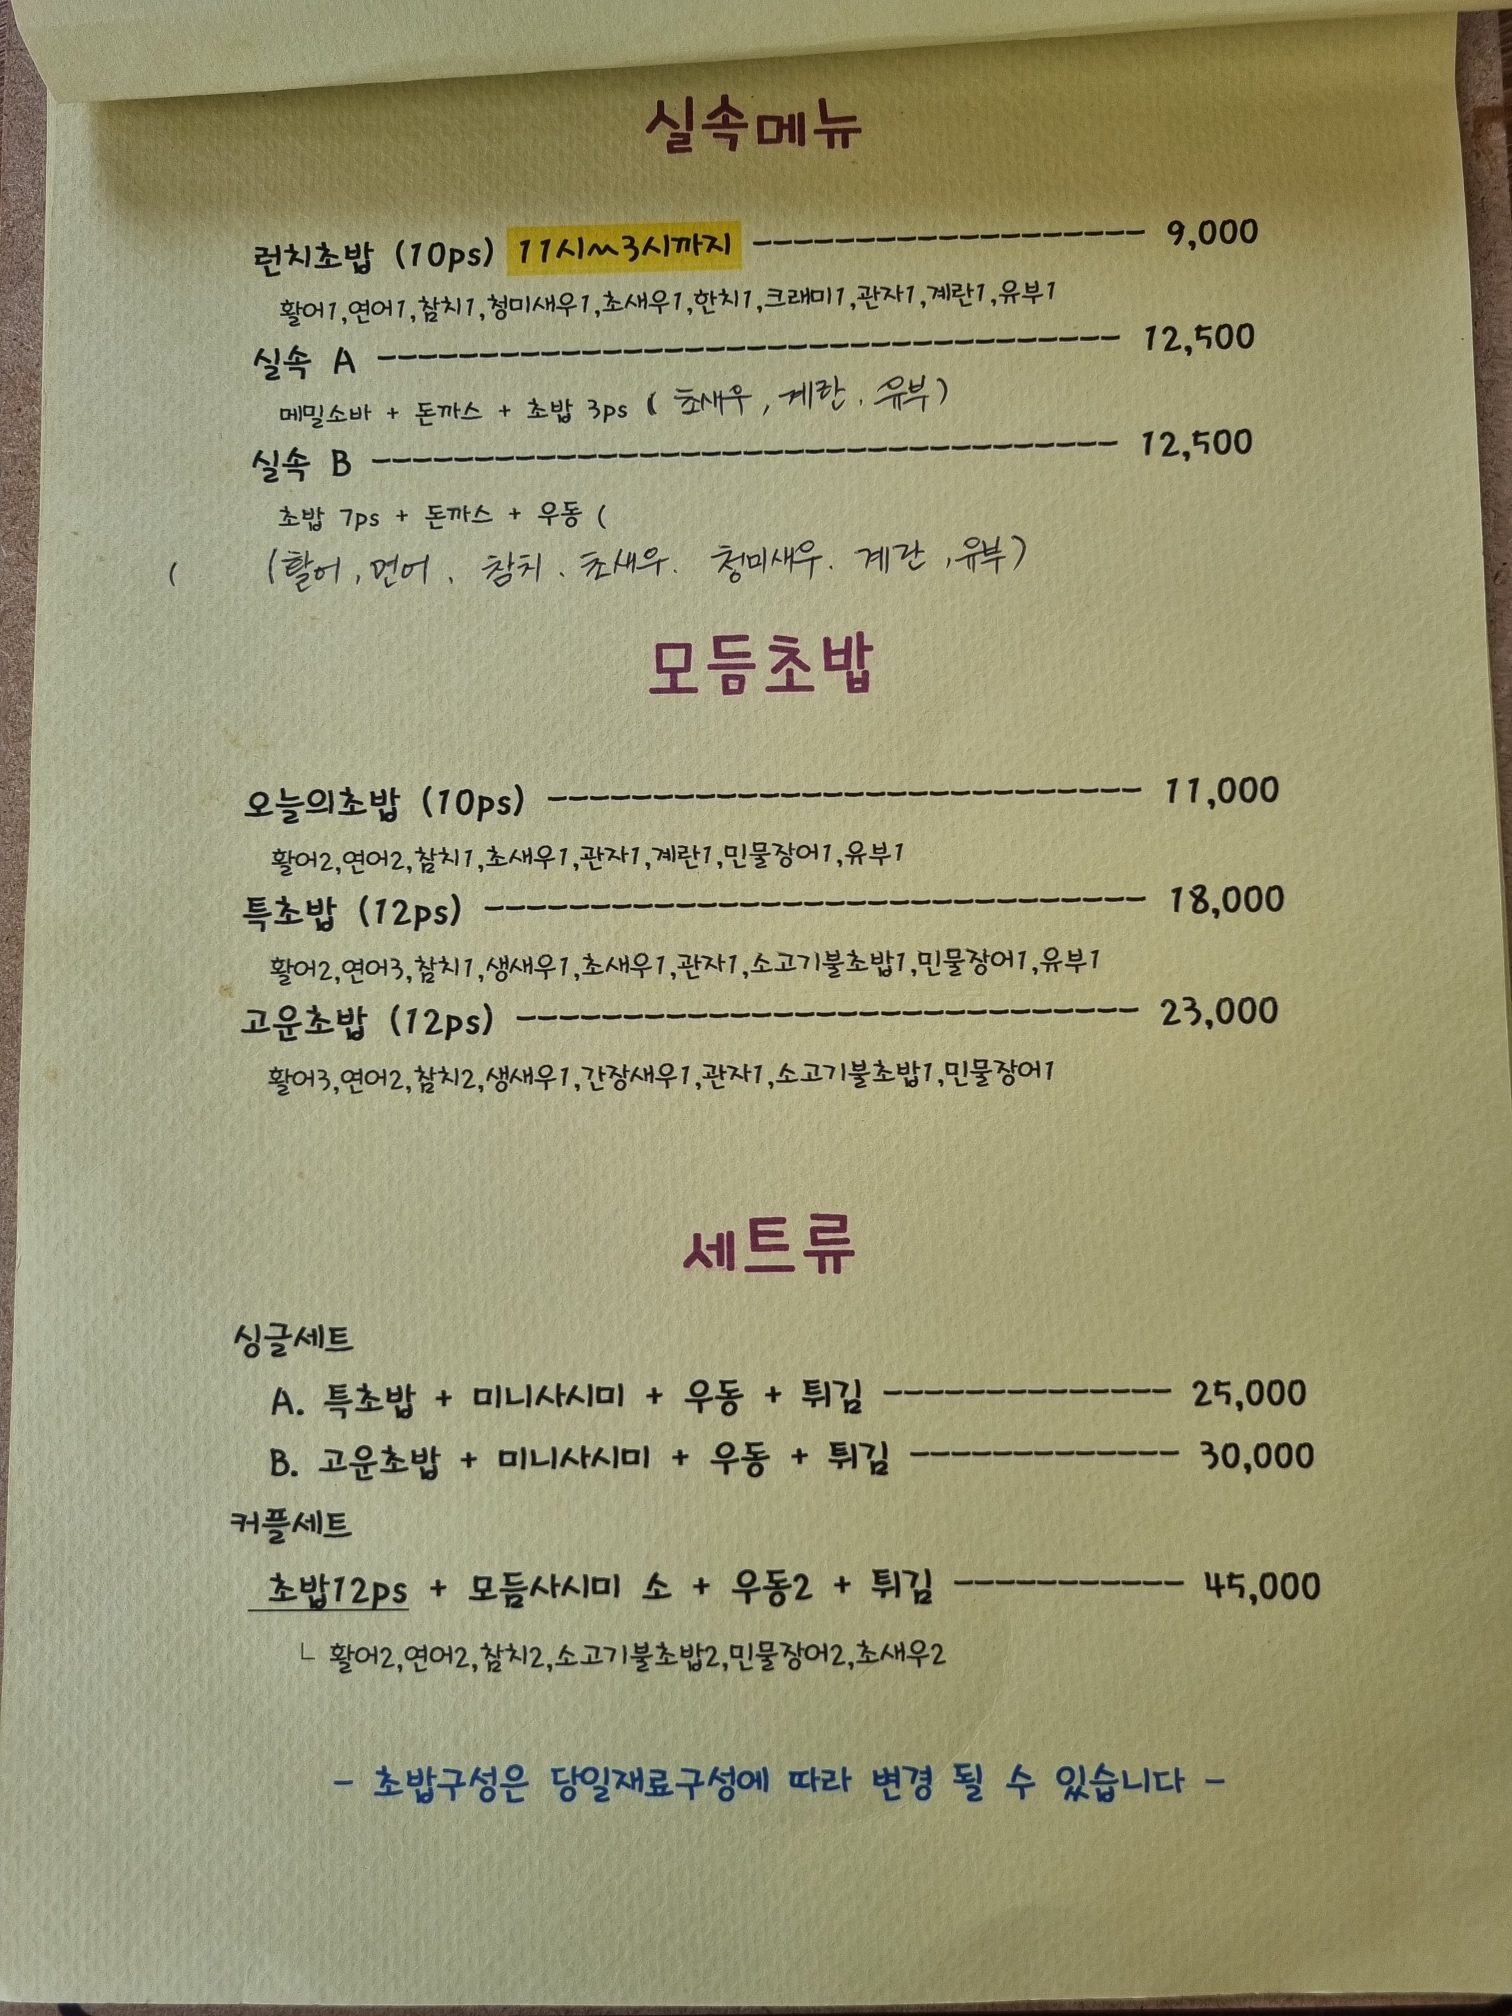 실속메뉴
런치초밥 (10ps) 11시~3시까지 ------------------- 9,000
활어1,연어1,참치1,청미새우1,초새우1,한치1,크래미1,관자1,계란1,유부1
실속 A ----------------------------------- 12,500
메밀소바 + 돈까스 + 초밥 3ps ( 초새우, 계란, 유부)
실속 B ----------------------------------- 12,500
초밥 7ps + 돈까스 + 우동 (
( (활어, 연어, 참치. 초새우. 청미새우. 계란, 유부)
모듬초밥
오늘의초밥 (10ps) ---------------------------- 11,000
활어2,연어2,참치1,초새우1,관자1,계란1,민물장어1,유부1
특초밥 (12ps) ------------------------------- 18,000
활어2,연어3,참치1,생새우1,초새우1,관자1,소고기불초밥1,민물장어1,유부1
고운초밥 (12ps) ----------------------------- 23,000
활어3,연어2,참치2,생새우1,간장새우1,관자1,소고기불초밥1,민물장어1
세트류
싱글세트
A. 특초밥 + 미니사시미 + 우동 + 튀김 -------------- 25,000
B. 고운초밥 + 미니사시미 + 우동 + 튀김 ------------- 30,000
커플세트
초밥12ps + 모듬사시미 소 + 우동2 + 튀김 ----------- 45,000
└ 활어2,연어2,참치2,소고기불초밥2,민물장어2,초새우2
- 초밥구성은 당일재료구성에 따라 변경 될 수 있습니다 -